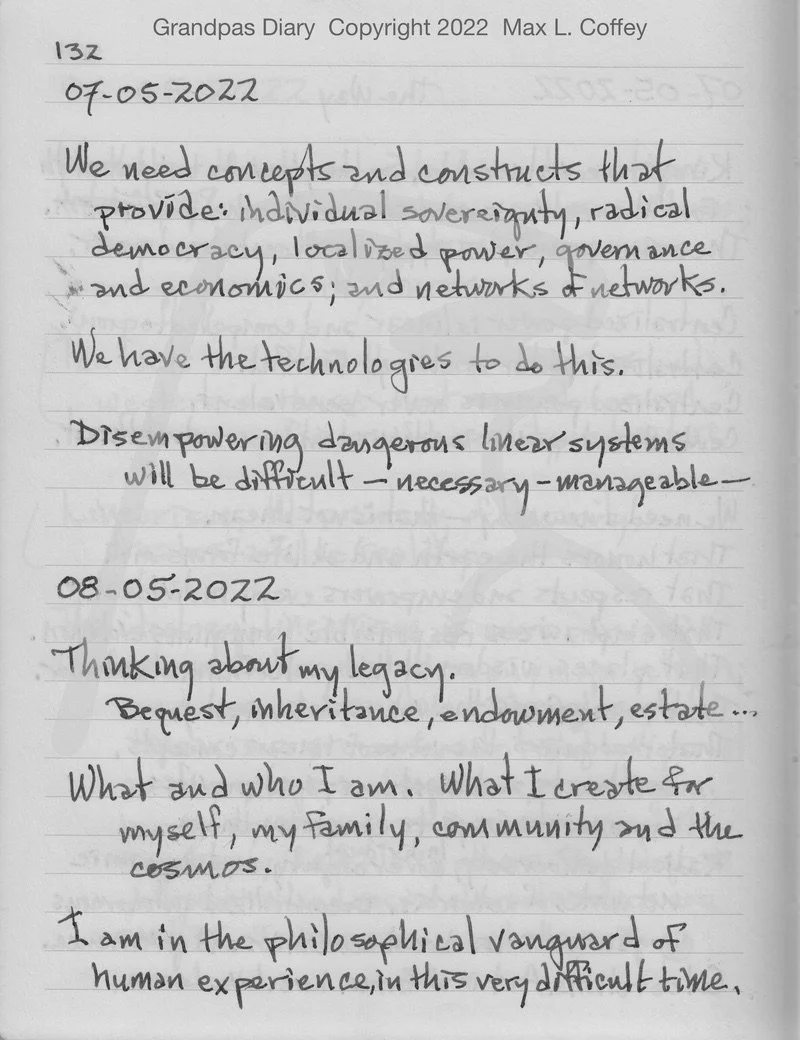 Grandpas Diary Copyright 2022 Max L. Coffey
132
07-05-2022
We need concepts and constructs that
provide: individual sovereignty, radical
democracy, localized power, governance
and economics; and networks of networks.
We have the technologies to do this.
Disempowering dangerous linear systems
will be difficult — necessary — manageable —
08-05-2022
Thinking about my legacy.
Bequest, inheritance, endowment, estate...
What and who I am. What I create for
myself, my family, community and the
cosmos.
I am in the philosophical vanguard of
human experience, in this very difficult time.